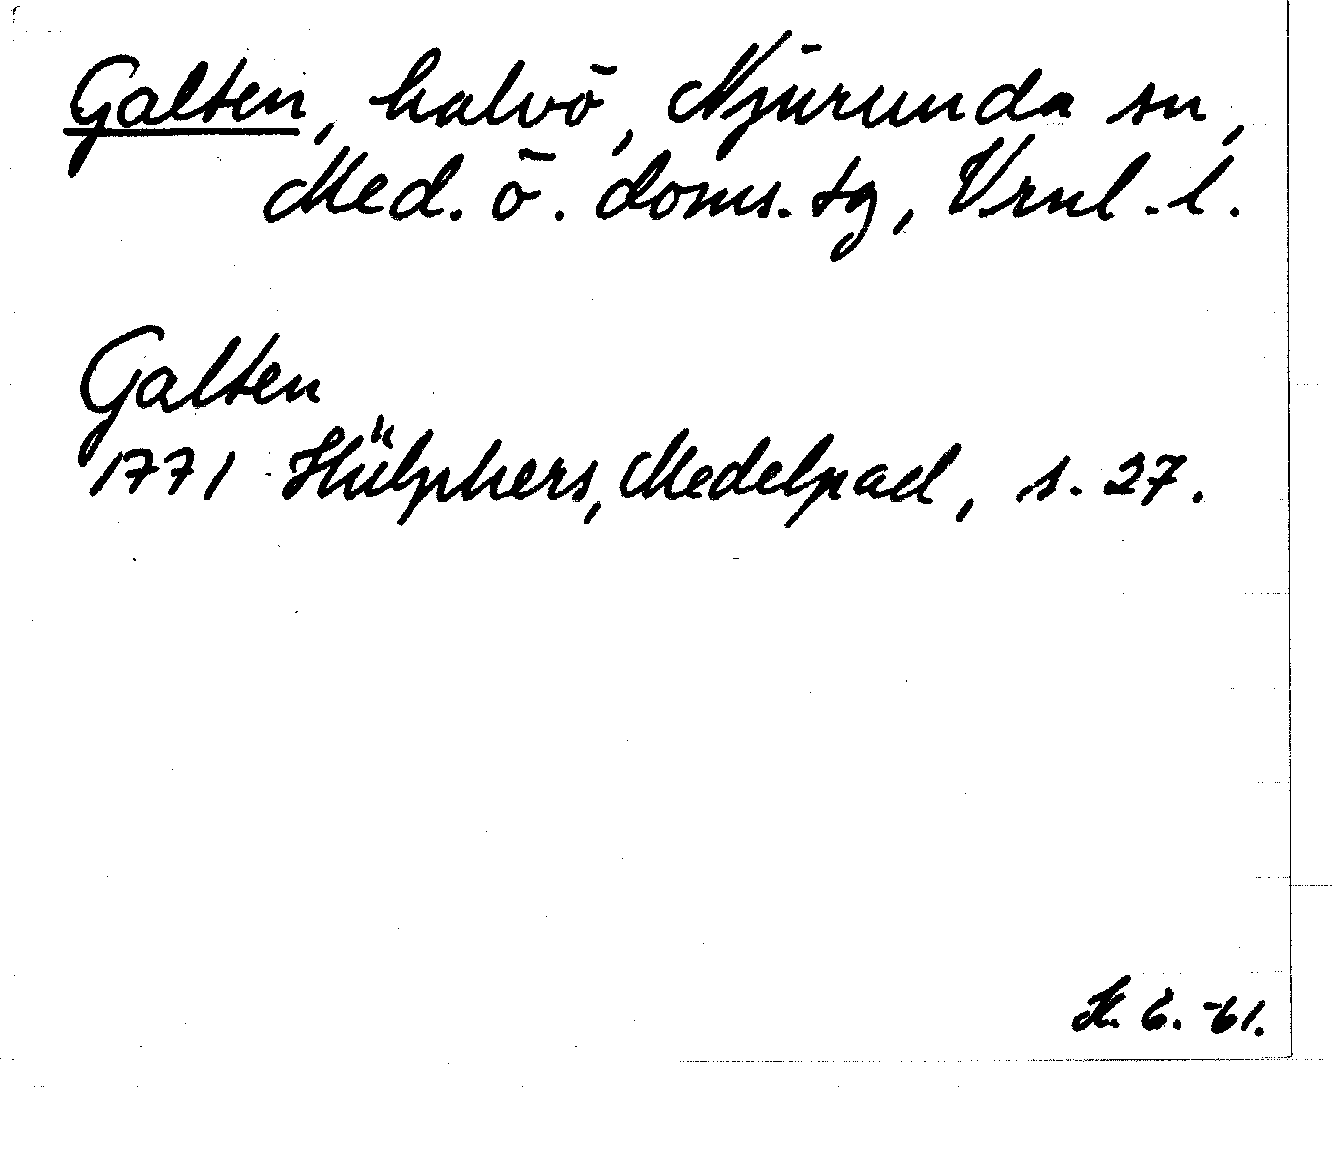 Galten, halvö, Njurunda sn,
Med. ö. doms. tg, Vrnl. l.
Galten
1771 Hülphers, Medelpad, s. 27.
K. G. -61.